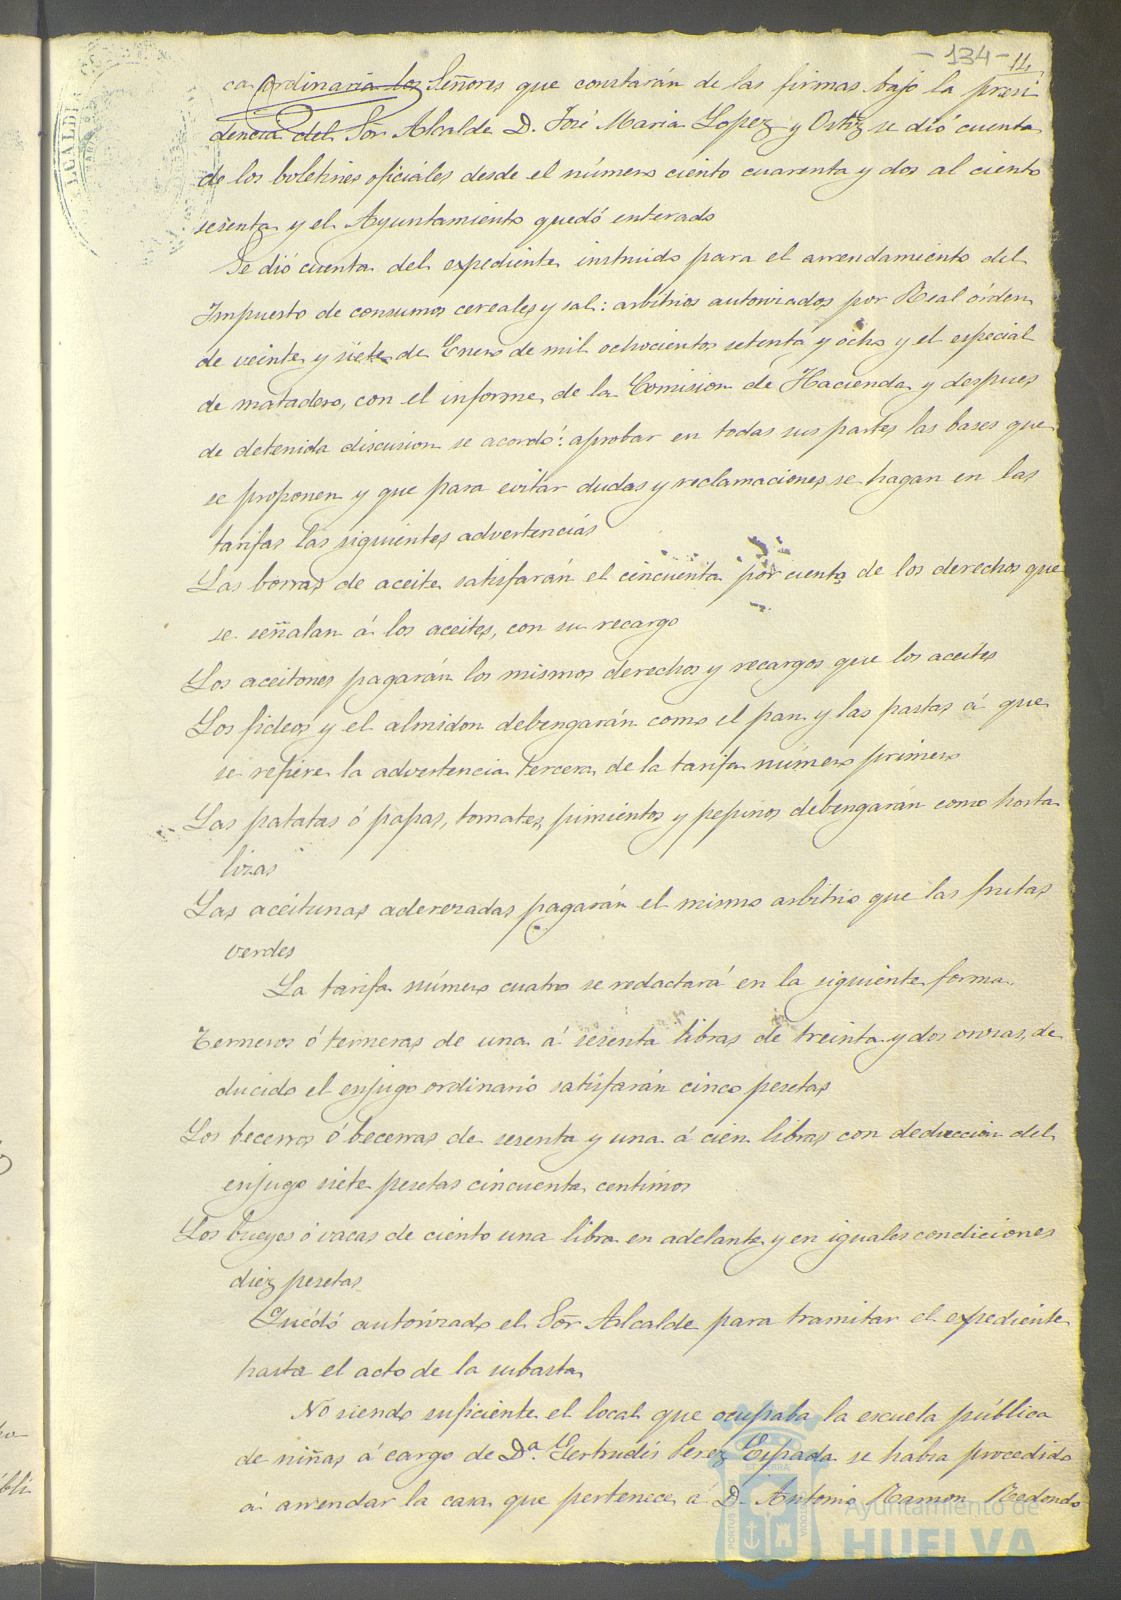 - 134 - 11,
ca ordinaria los Señores que constarán de las firmas bajo la presi
dencia del Sor Alcalde D. José Maria Lopez y Ortiz se dió cuenta
de los boletines oficiáles desde el número ciento cuarenta y dos al ciento
sesenta y el Ayuntamiento quedó enterado
Se dió cuenta del expediente instruido para el arrendamiento del
Impuesto de consumos cereales y sal: arbitrios autorizados por Real órden
de veinte y siete de Enero de mil ochocientos setenta y ocho y el especial
de matadero, con el informe de la Comision de Hacienda y despues
de detenida discusion se acordó: aprobar en todas sus partes las bases que
se proponen y que para evitar dudas y reclamaciones se hagan en las
tarifas las siguientes advertencias
Las borras de aceite satisfarán el cincuenta por ciento de los derechos que
se señalan á los aceites, con su recargo
Los aceitones pagarán los mismos derechos y recargos que los aceites
Los fideos y el almidon debengarán como el pan y las pastas á que
se refiere la advertencia tercera de la tarifa número primero
Las patatas ó papas, tomates, pimientos y pepinos debengarán como horta
lizas
Las aceitunas aderezadas pagarán el mismo arbitrio que las frutas
verdes
La tarifa número cuatro se redactará en la siguiente forma.
Terneros ó terneras de una á sesenta libras de treinta y dos onzas, de
ducido el enjugo ordinario satisfarán cinco pesetas
Los becerros ó becerras de sesenta y una á cien libras con deduccion del
enjugo siete pesetas cincuenta centimos
Los bueyes ó vacas de ciento una libra en adelante y en iguales condiciones
diez pesetas
Quedó autorizado el Sor Alcalde para tramitar el expediente
hasta el acto de la subasta
No siendo suficiente el local que ocupaba la escuela pública
de niñas á cargo de Da. Gertrudis Perez Espada se habia procedido
á arrendar la casa que pertenece á D. Antonio Ramon Redondo
Ayuntamiento de
HUELVA